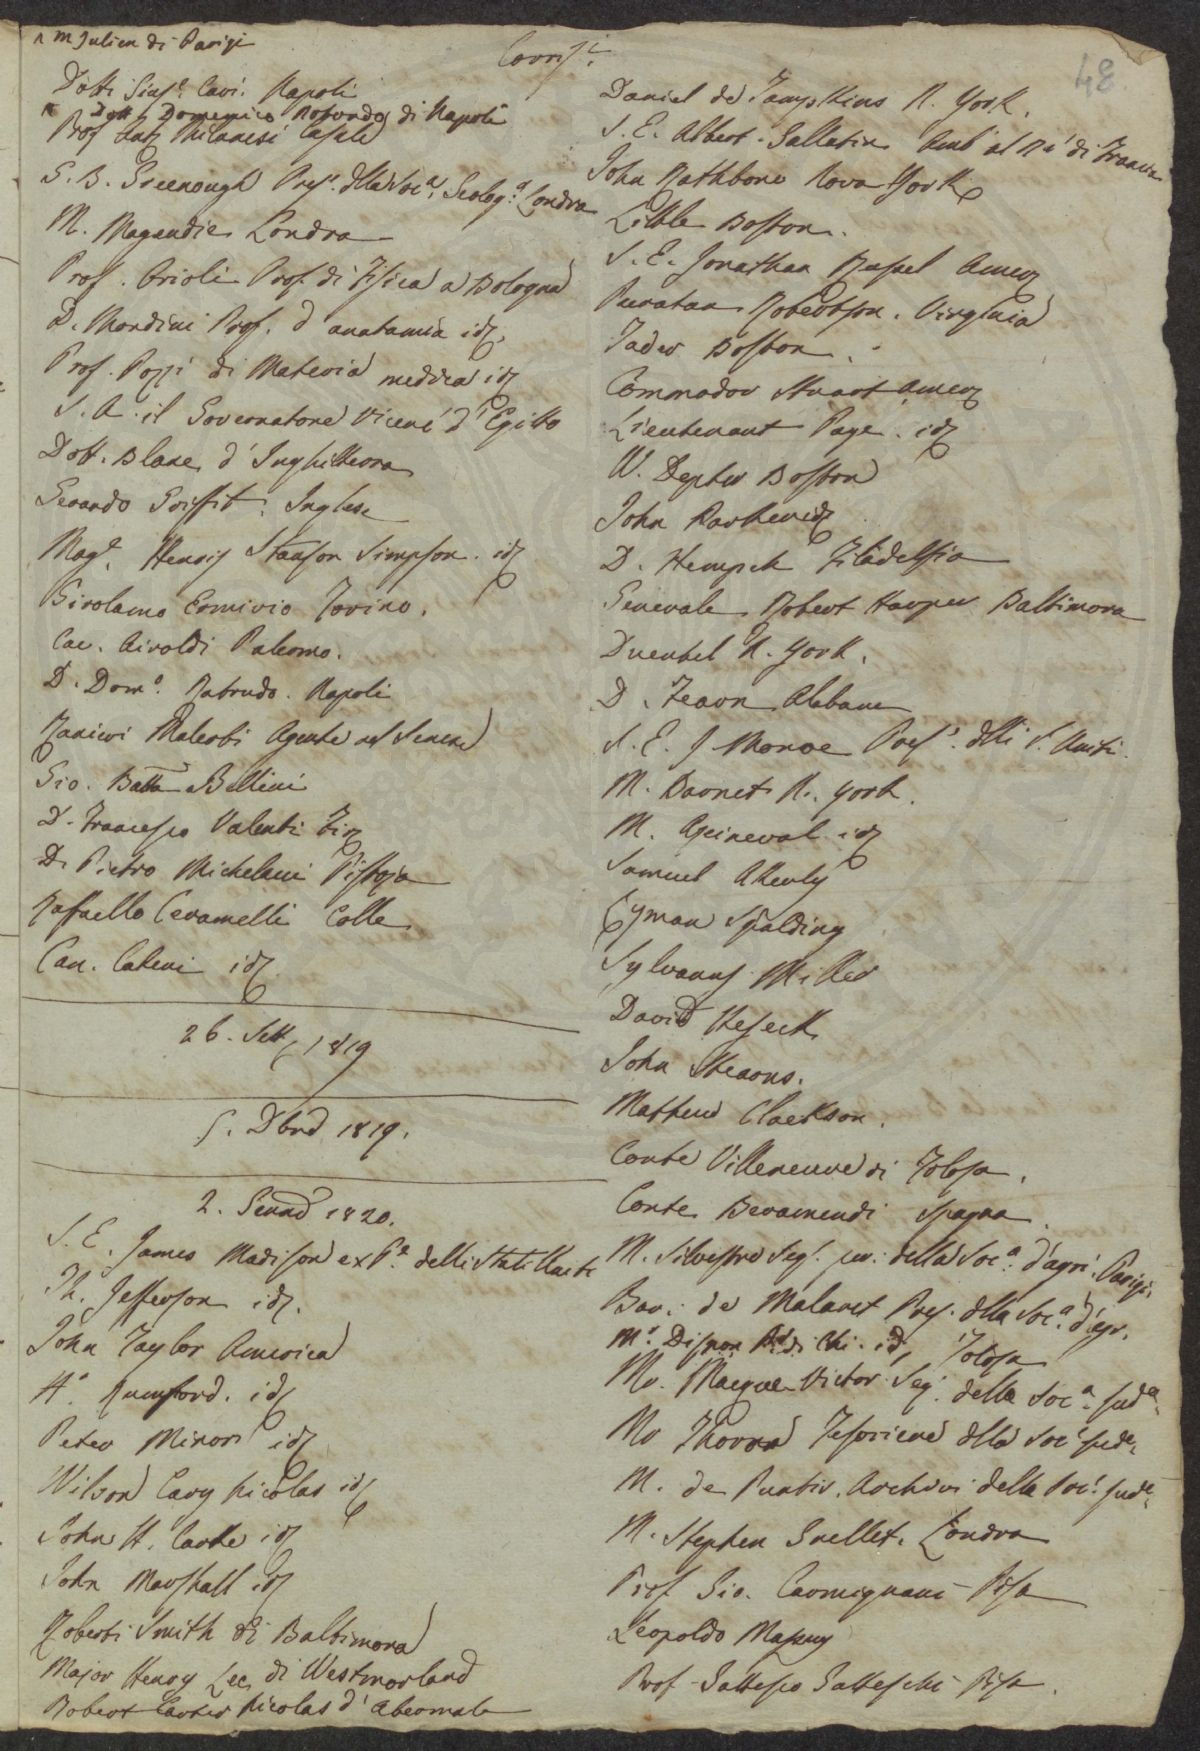 M Julien di Parigi
Corrisp.i
48
Dott. Gius.e Cavi. Napoli
Dott Domenico Rotundo di Napoli
Prof Milanesi Casale
G. B. Greenough Pres. della Soc.a Geolog.a Londra
M. Magendie Londra
Prof. Orioli Prof. di Fisica a Bologna
D. Mondini Prof. d'anatomia id.
Prof. Pozzi di Materia medica id
S. A. il Governatore Vicerè d'Egitto
Dott. Blane d'Inghilterra
Gerardo Griffit. Inglese
Mag.e Henrij Stanson Simpson. id
Girolamo Torino.
Cav. Airoldi Palermo.
D. Dom.o Rotundo. Napoli
Ranieri Malerbi Agente nel Senese
Gio. Batta Bellini
D. Francesco Valenti Fir
D. Pietro Michelacci Pistoja
Raffaello Ceramelli Colle
Can. Cateni id
26. Sett. 1819
5. Dbre 1819.
2. Genn. 1820.
S. E. James Madison ex P.e delli Stati Uniti
Th. Jefferson id.
John Taylor America
H. Rumford. id
Peter Minor id
Wilson Cary Nicolas id
John H. Cocke id
John Marshall id
Roberti Smith di Baltimora
Major Henry Lee di Westmorland
Robert Carter Nicolas d'Abermale
Daniel de Tompkins N. York.
S. E. Albert Gallatin Amb. al Re di Francia
John Rathbone Nova York
Little Boston.
S. E. Jonathan Russel Amer
Robertson. Virginia
Tader Boston.
Commodor Stuart Amer
Lieutenant Page. id
W. Dexter Boston
John Parker id
D. Hempsch Filadelfia
Generale Robert Harper Baltimora
N. York.
D. Alabame
S. E. J Monroe Pres. delli S. Uniti.
M. Barnet N. York.
M. id
Samuel Akerly
Lyman Spalding
Sylvanus Miller
David Hosack
John Stearns.
Mattew Clarkson.
Conte Villeneuve di Tolosa.
Conte Beramendi Spagna.
M. Silvestre Seg. per. della Soc.a d'agri. Parigi.
Bar. de Malaret Pres. della Soc.a d'agr.
M.r Dispan P. di Chi. id, Tolosa
Mr. Macque Victor Seg. della Soc.a sud.a
Mr Tesoriere della Soc. sud.a
M. de Puntis. Archivi della Soc. sud.a
M. Stephen Grellet. Londra
Prof Gio. Carmignani Pisa
Leopoldo
Prof Galtesco Galteschi Pisa.